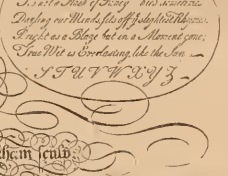 Dazling our Minds sets off ye slightest Rhymes.
Bright as a Blaze but in a Moment gone;
True Wit is Everlasting, like the Sun
S T U V W X Y Z
sculp.